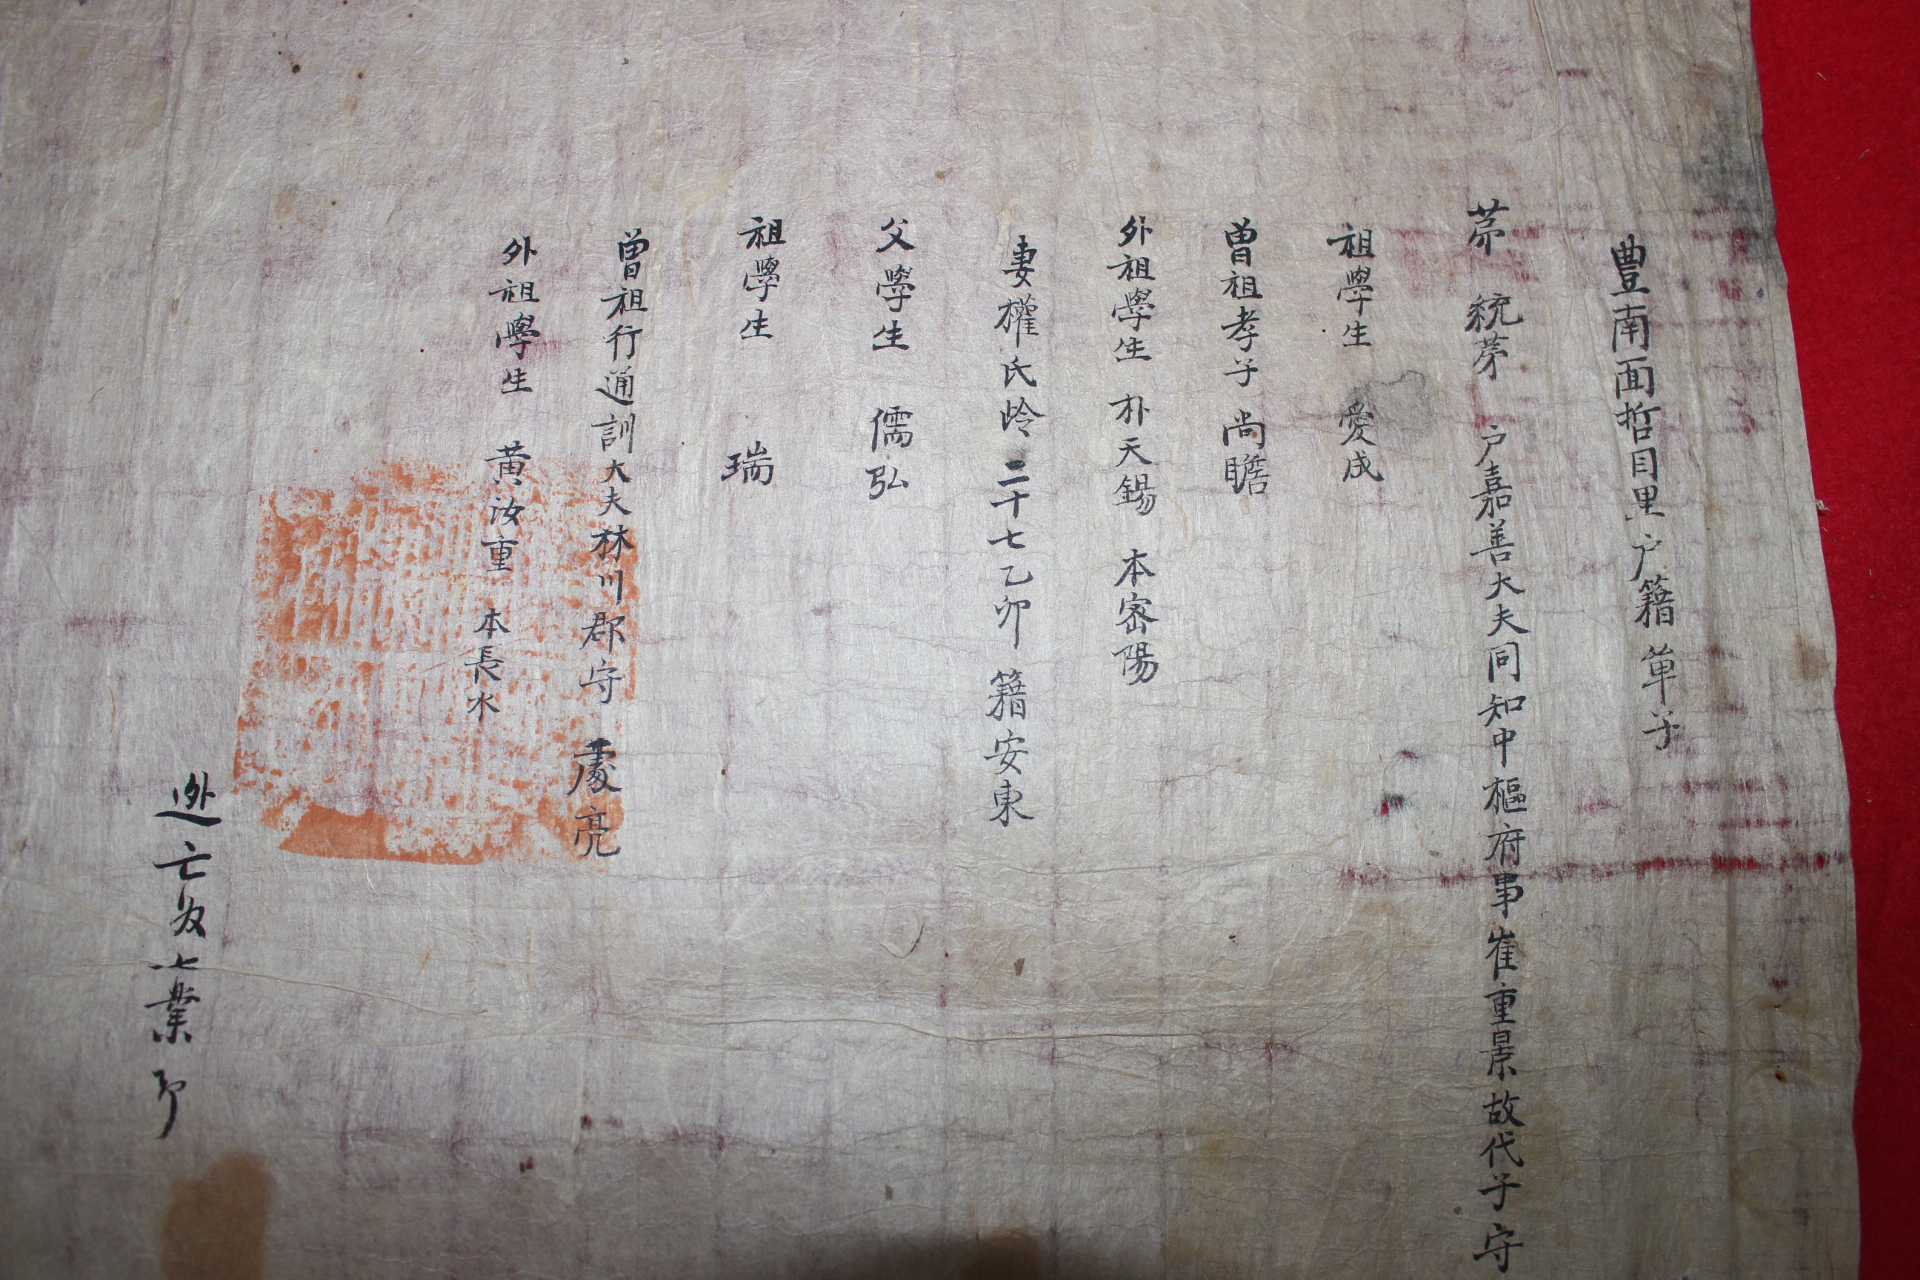 豊南面哲目里户籍單子
苐 統苐 户嘉善大夫同知中樞府事崔重景故代子守
祖學生 愛成
曾祖孝子 尚瞻
外祖學生 朴天錫 本密陽
妻權氏岭二十七乙卯 籍安東
父學生 儒弘
祖學生 瑞
曾祖行通訓大夫林川郡守 處亮
外祖學生 黄汝重 本長水
逃亡